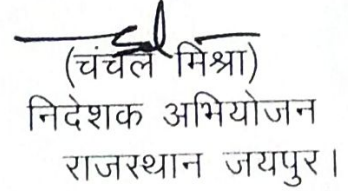 (चंचल मिश्रा)
निदेशक अभियोजन
राजस्थान जयपुर।